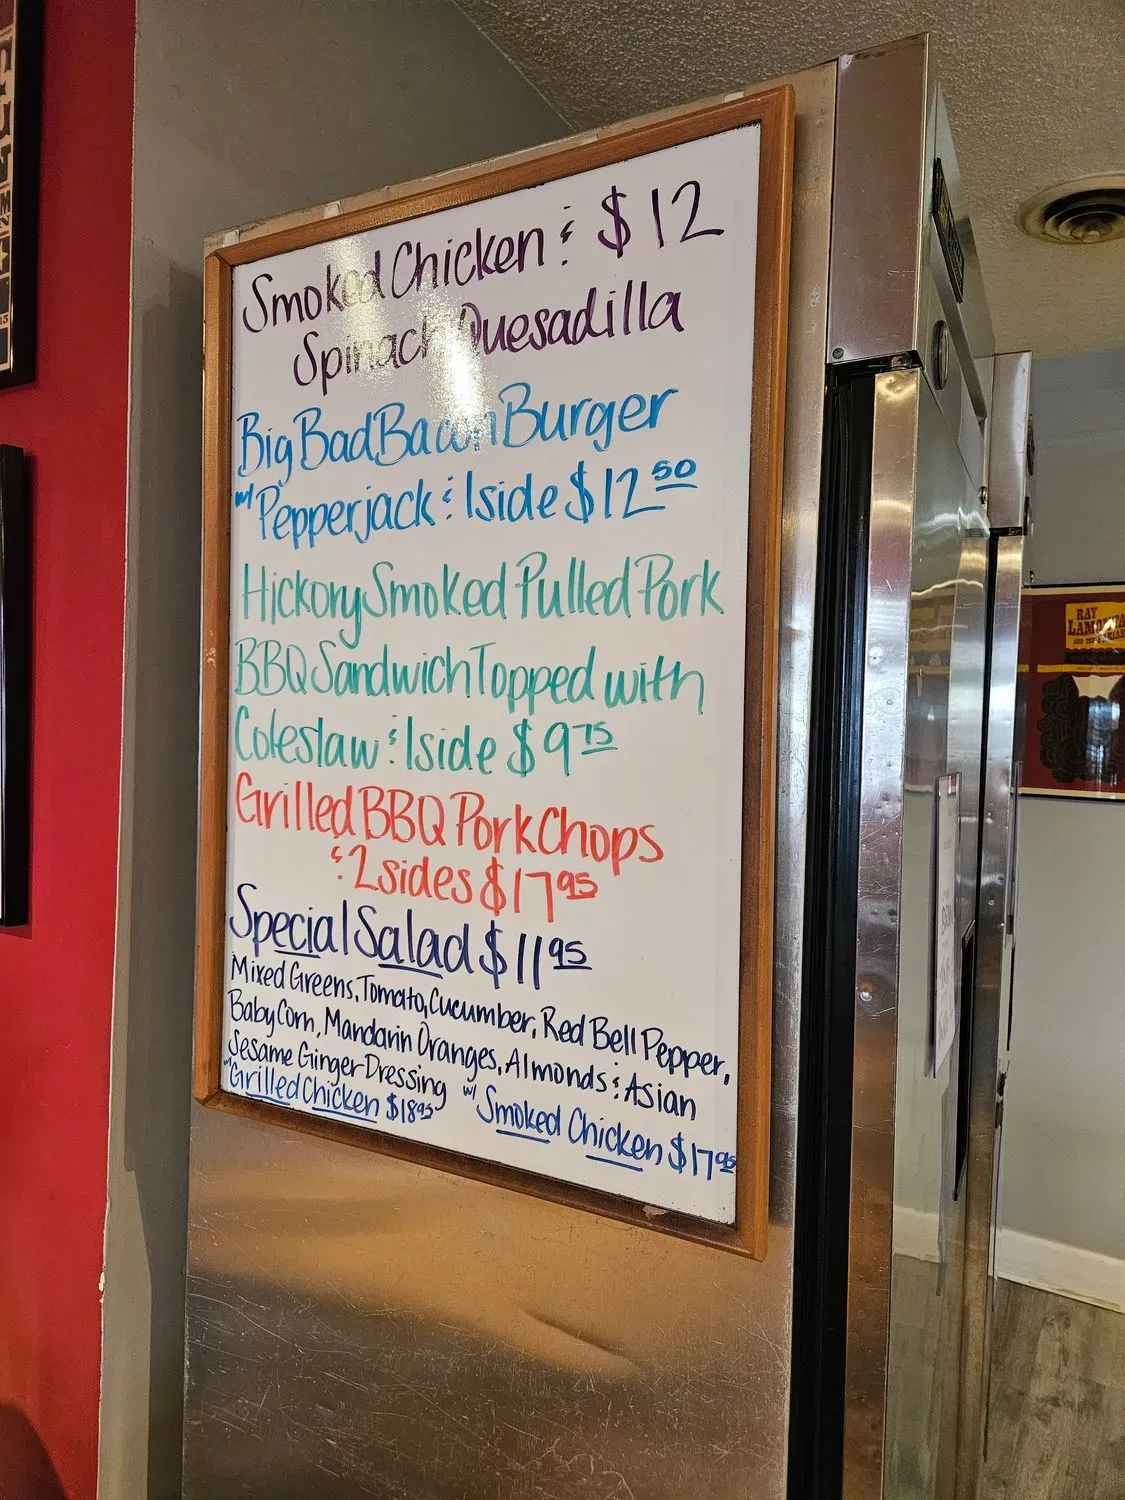 Smoked Chicken & $12
Spinach Quesadilla
Big Bad Bacon Burger
w/ Pepperjack & 1 side $12.50
Hickory Smoked Pulled Pork
BBQ Sandwich Topped with
Coleslaw & 1 side $9.75
Grilled BBQ Pork Chops
& 2 sides $17.95
Special Salad $11.95
Mixed Greens, Tomato, Cucumber, Red Bell Pepper,
Baby Corn, Mandarin Oranges, Almonds & Asian
Sesame Ginger Dressing
w/ Grilled Chicken $18.95 w/ Smoked Chicken $17.95
RAY